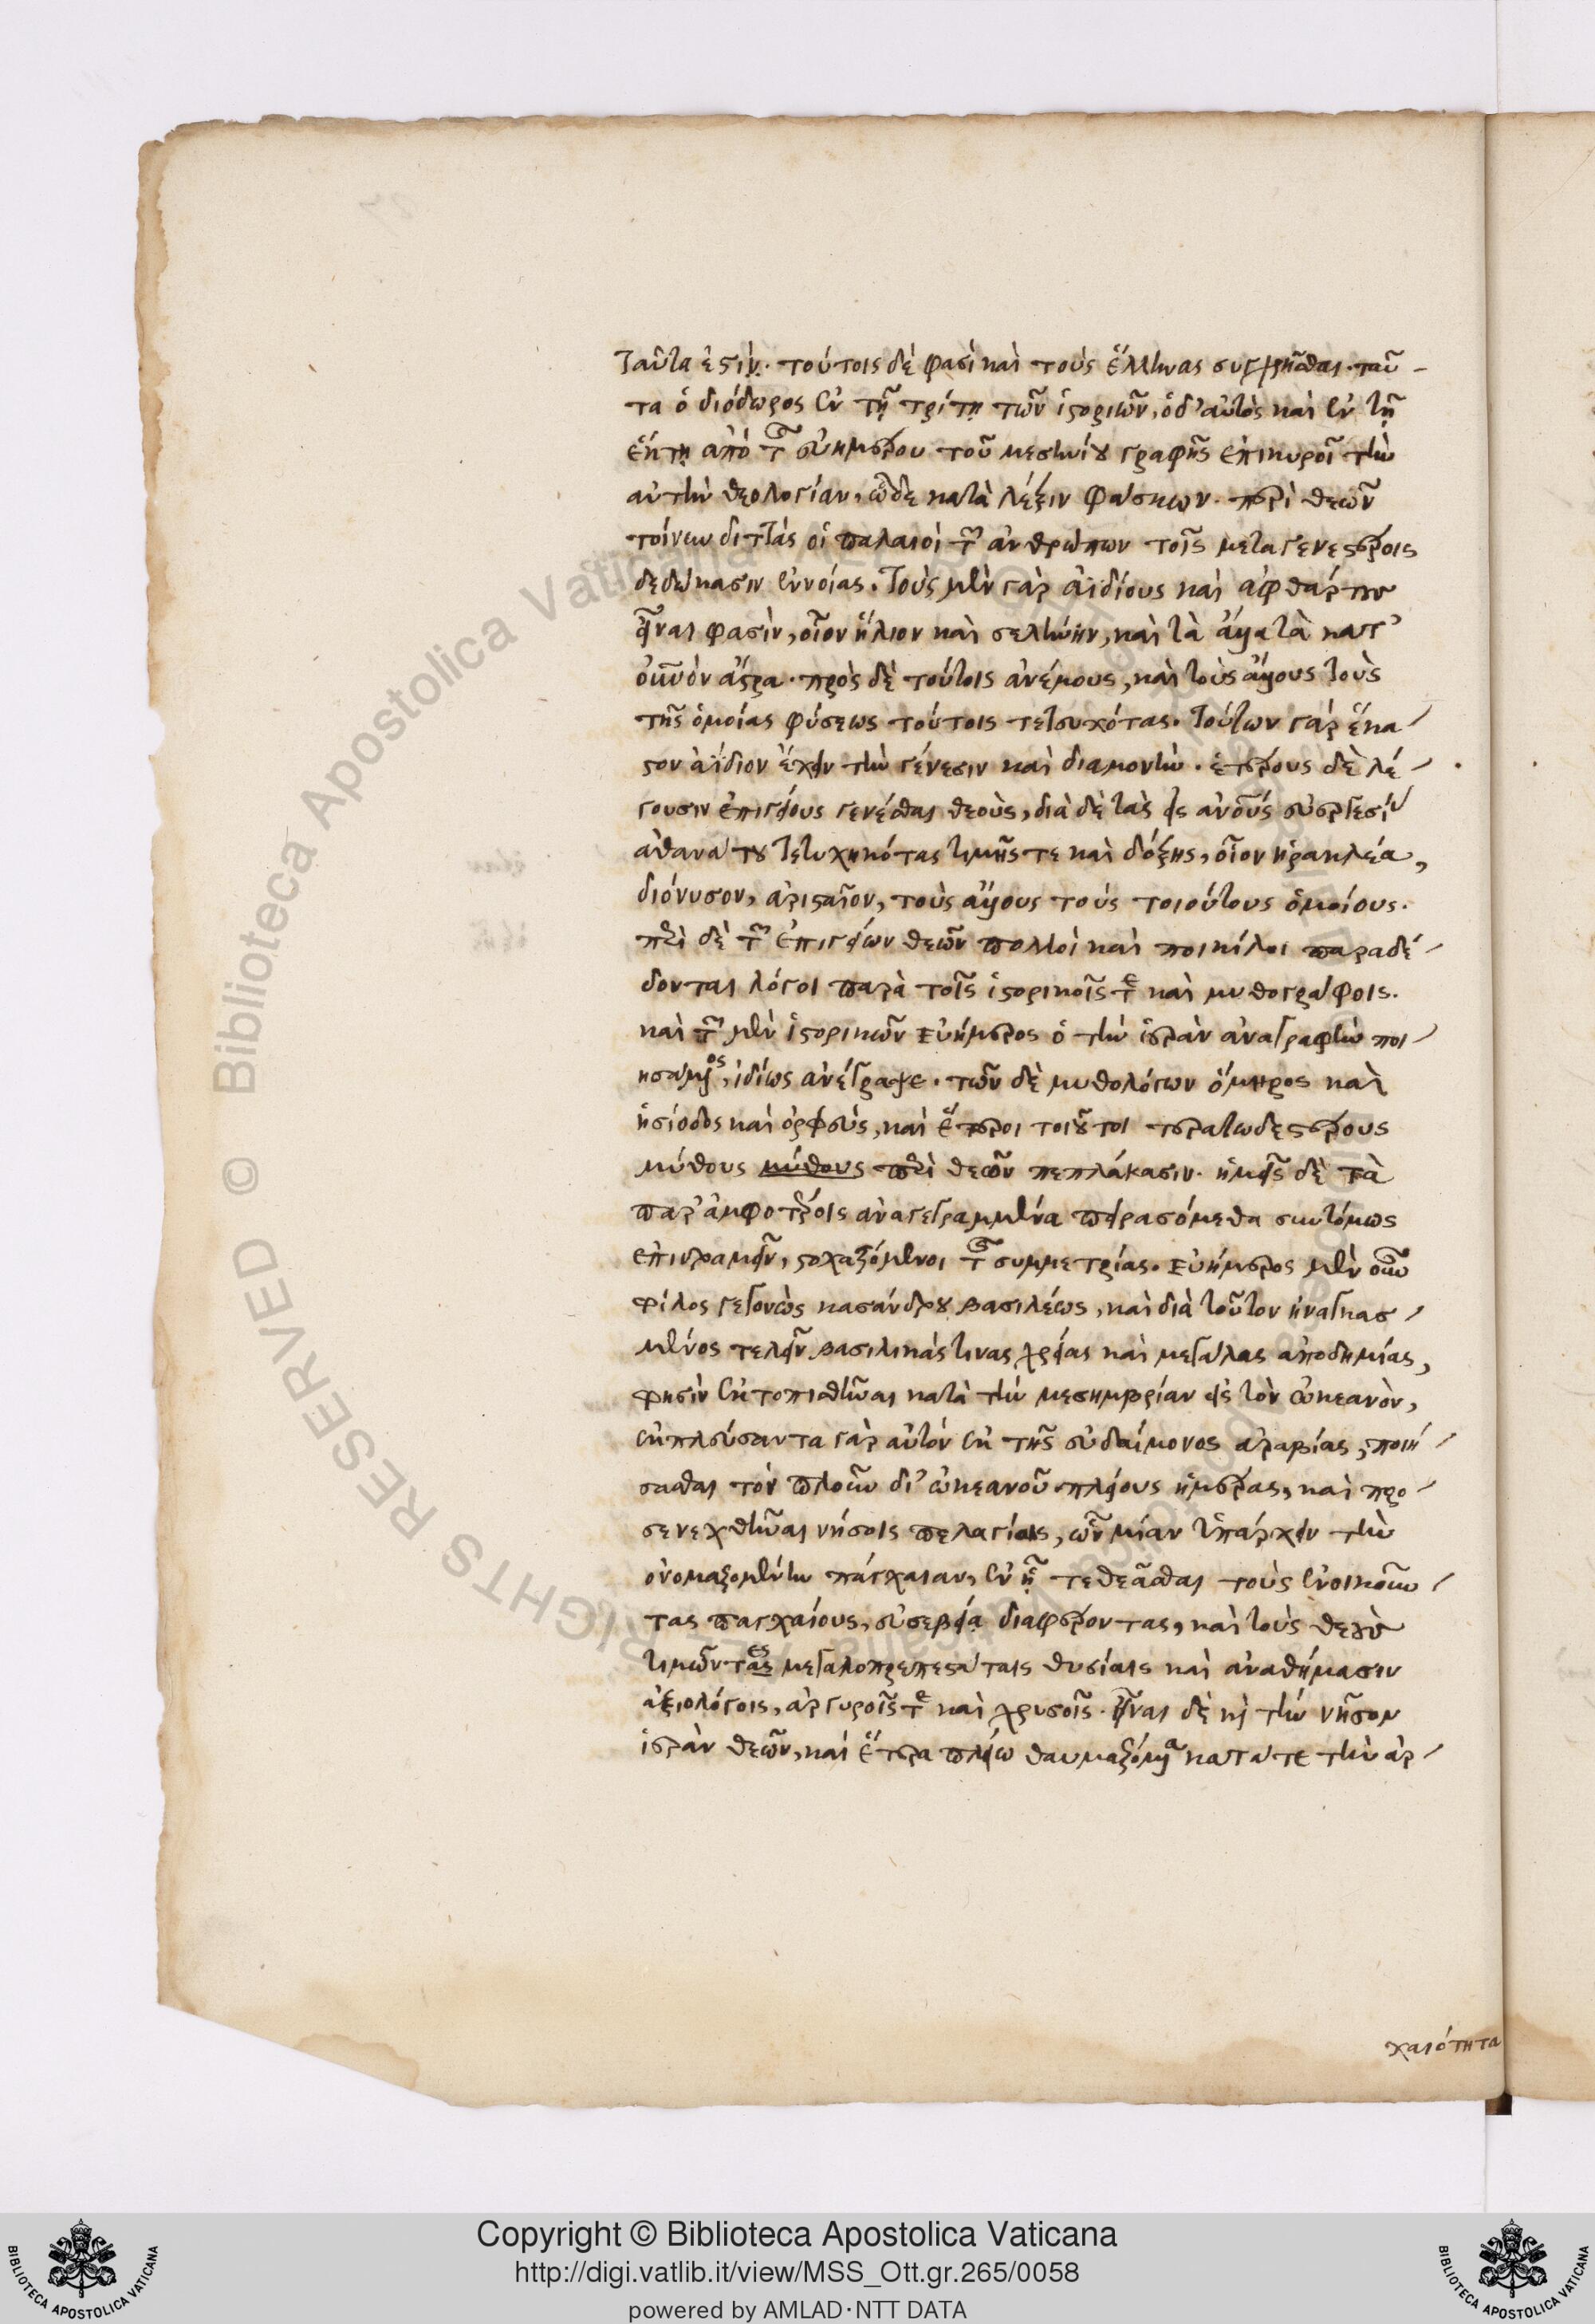 ταῦτα ἐστὶν. τούτοις δέ φασὶ καὶ τοὺς ἕλληνας συγχρῆσθαι. ταῦ-
τα ὁ διόδωρος ἐν τῇ τρίτῃ τῶν ἱστοριῶν, ὁ δ' αὐτὸς καὶ ἐν τῇ
ἕκτῃ ἀπὸ τῆς εὐημέρου τοῦ μεσηνίου γραφῆς ἐπικυροῖ τὴν
αὐτὴν θεολογίαν, ὧδε κατὰ λέξιν φάσκων. περὶ θεῶν
τοίνυν διττὰς οἱ παλαιοὶ τῶν ἀνθρώπων τοῖς μεταγενεστέροις
δεδώκασιν ἐννοίας. τοὺς μὲν γὰρ ἀϊδίους καὶ ἀφθάρτους
εἶναι φασὶν, οἷον ἥλιον καὶ σελήνην, καὶ τὰ ἄλλα τὰ κατ'
οὐρανὸν ἄστρα. πρὸς δὲ τούτοις ἀνέμους, καὶ τοὺς ἄλλους τοὺς
τῆς ὁμοίας φύσεως τούτοις τετευχότας. τούτων γὰρ ἕκα-
στον ἀΐδιον ἔχειν τὴν γένεσιν καὶ διαμονήν. ἑτέρους δὲ λέ-
γουσιν ἐπιγείους γενέσθαι θεοὺς, διὰ δὲ τὰς εἰς ἀνθρώπους εὐεργεσίας
ἀθανάτου τετυχηκότας τιμῆς τε καὶ δόξης, οἷον ἡρακλέα,
διόνυσον, ἀρισταῖον, τοὺς ἄλλους τοὺς τοιούτους ὁμοίους.
περὶ δὲ τῶν ἐπιγείων θεῶν πολλοὶ καὶ ποικίλοι παραδέ-
δονται λόγοι παρὰ τοῖς ἱστορικοῖς τε καὶ μυθογράφοις.
καὶ τῶν μὲν ἱστορικῶν εὐήμερος ὁ τὴν ἱερὰν ἀναγραφὴν ποι-
ησάμενος, ἰδίως ἀνέγραψε. τῶν δὲ μυθολόγων ὅμηρος καὶ
ἡσίοδος καὶ ὀρφεὺς, καὶ ἕτεροι τοιοῦτοι τερατωδεστέρους
μύθους μύθους περὶ θεῶν πεπλάκασιν. ἡμεῖς δὲ τὰ
παρ' ἀμφοτέροις ἀναγεγραμμένα πειρασόμεθα συντόμως
ἐπιδραμεῖν, στοχαζόμενοι τῆς συμμετρίας. εὐήμερος μὲν οὖν
φίλος γεγονὼς κασάνδρου βασιλέως, καὶ διὰ τοῦτον ἠναγκασ-
μένος τελεῖν βασιλικάς τινας χρείας καὶ μεγάλας ἀποδημίας,
φησὶν ἐκτοπισθῆναι κατὰ τὴν μεσημβρίαν εἰς τὸν ὠκεανὸν,
ἐκπλεύσαντα γὰρ αὐτὸν ἐκ τῆς εὐδαίμονος ἀραβίας, ποιή-
σασθαι τὸν πλοῦν δι' ὠκεανοῦ πλείους ἡμέρας, καὶ προ-
σενεχθῆναι νήσοις πελαγίαις, ὧν μίαν ὑπάρχειν τὴν
ὀνομαζομένην πάγχαιαν, ἐν ᾗ τεθεᾶσθαι τοὺς ἐνοικοῦν-
τας παγχαίους, εὐσεβείᾳ διαφέροντας, καὶ τοὺς θεοὺς
τιμῶντας μεγαλοπρεπεστάταις θυσίαις καὶ ἀναθήμασιν
ἀξιολόγοις, ἀργυροῖς τε καὶ χρυσοῖς. εἶναι δὲ καὶ τὴν νῆσον
ἱερὰν θεῶν, καὶ ἕτερα πλείω θαυμαζόμενα κατά τε τὴν ἀρ-
χαιότητα
Copyright © Biblioteca Apostolica Vaticana
http://digi.vatlib.it/view/MSS_Ott.gr.265/0058
powered by AMLAD·NTT DATA